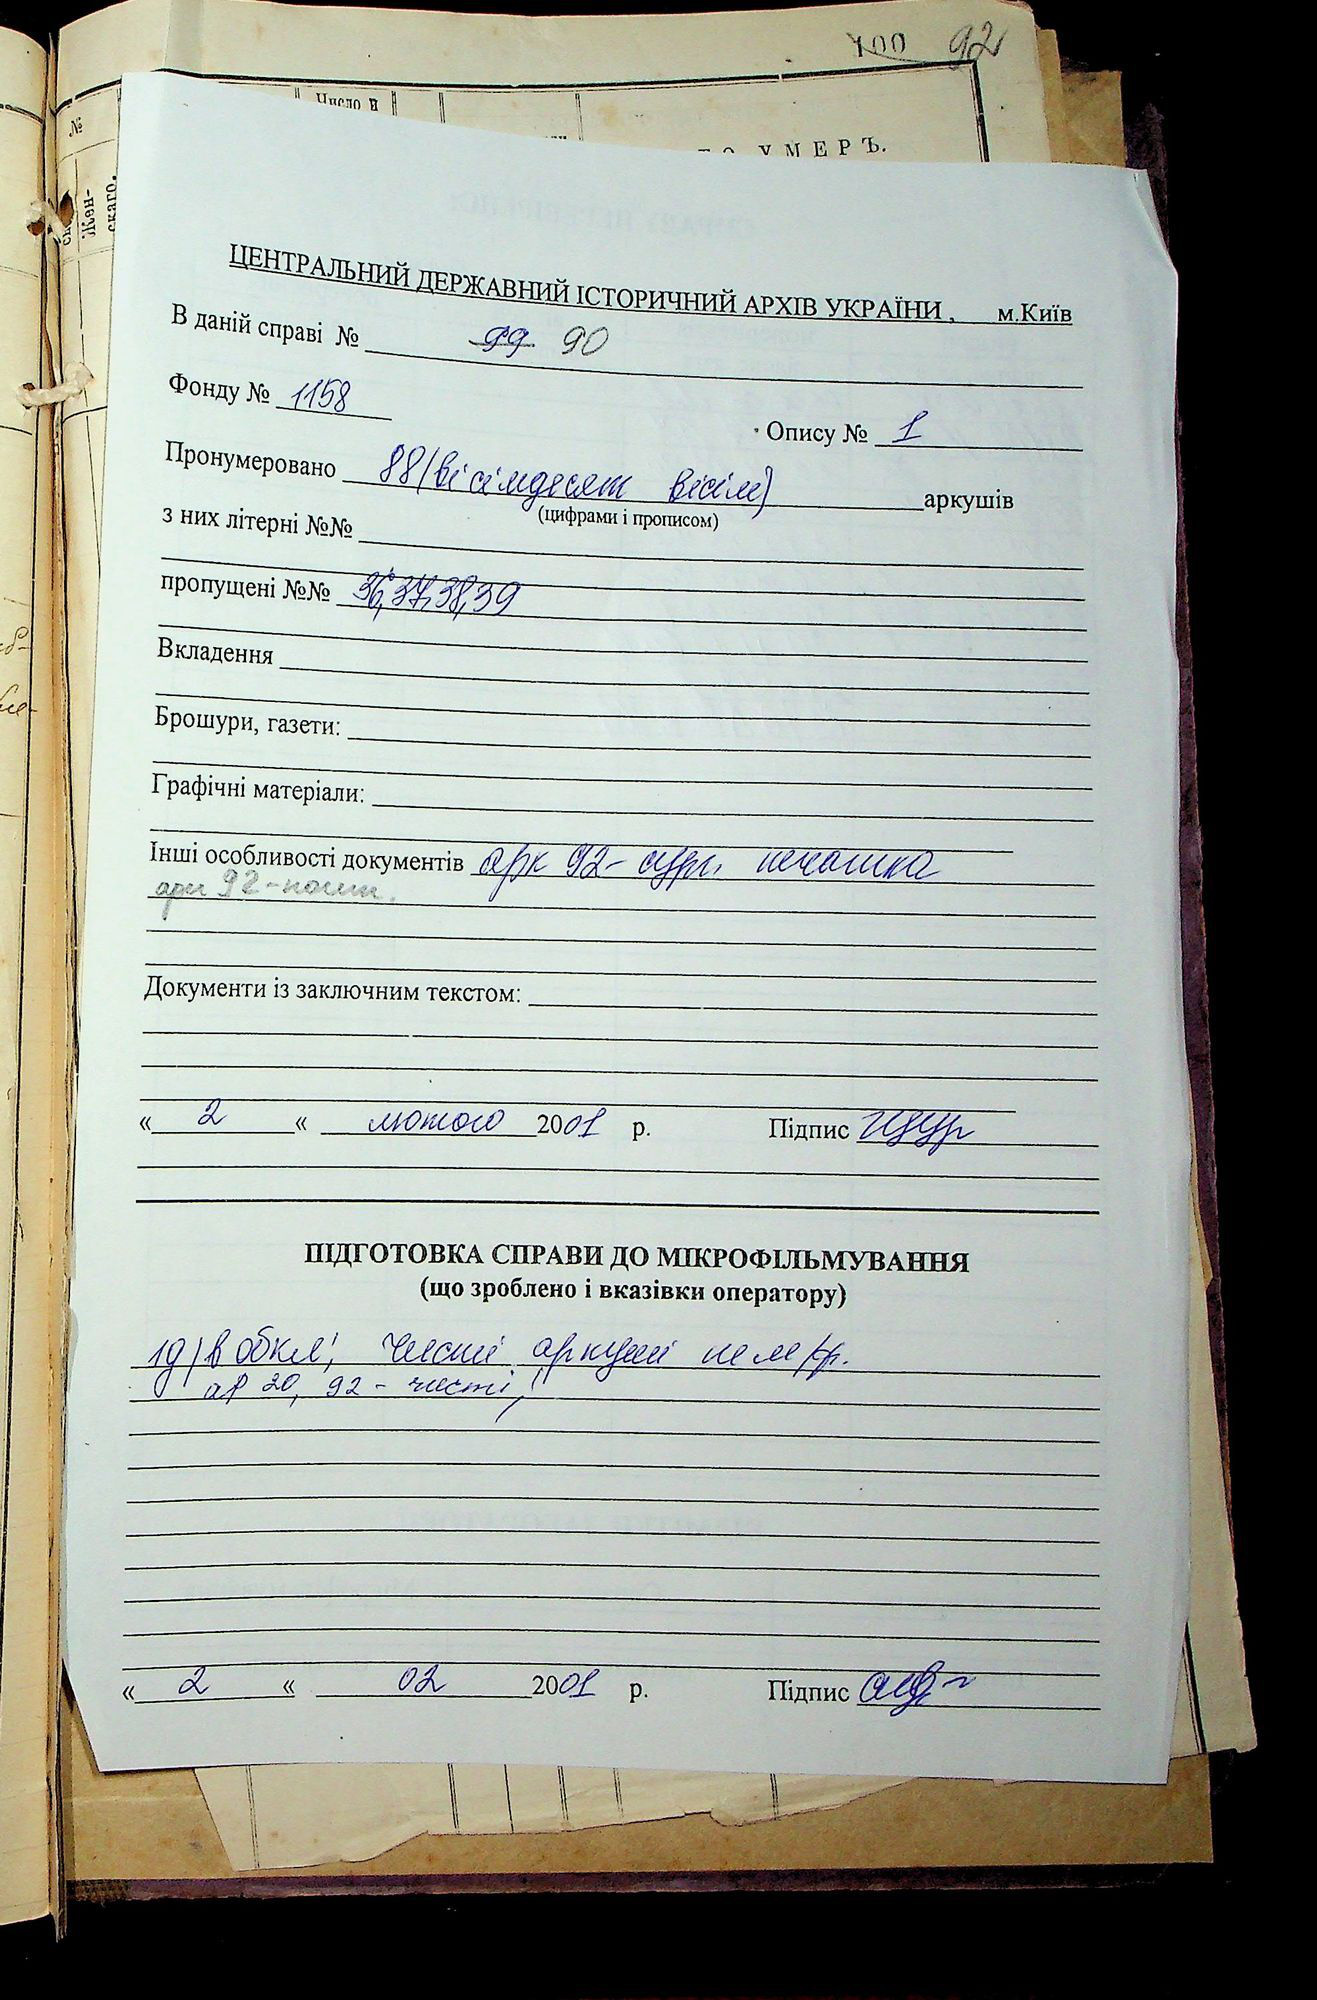 100 92
№ Число и
УМЕРЪ.
Жен-
скаго.
ЦЕНТРАЛЬНИЙ ДЕРЖАВНИЙ ІСТОРИЧНИЙ АРХІВ УКРАЇНИ, м.Київ
В даній справі № 99 90
Фонду № 1158
Опису № 1
Пронумеровано 88 (вісімдесят вісім) аркушів
(цифрами і прописом)
з них літерні №№
пропущені №№ 36,37,38,39
Вкладення
Брошури, газети:
Графічні матеріали:
Інші особливості документів арк 92- сург. печатка
арк 92-пошк.
Документи із заключним текстом:
« 2 « лютого 2001 р. Підпис
ПІДГОТОВКА СПРАВИ ДО МІКРОФІЛЬМУВАННЯ
(що зроблено і вказівки оператору)
в обкл; чисті аркуші
92 - чисті,
« 2 « 02 2001 р. Підпис